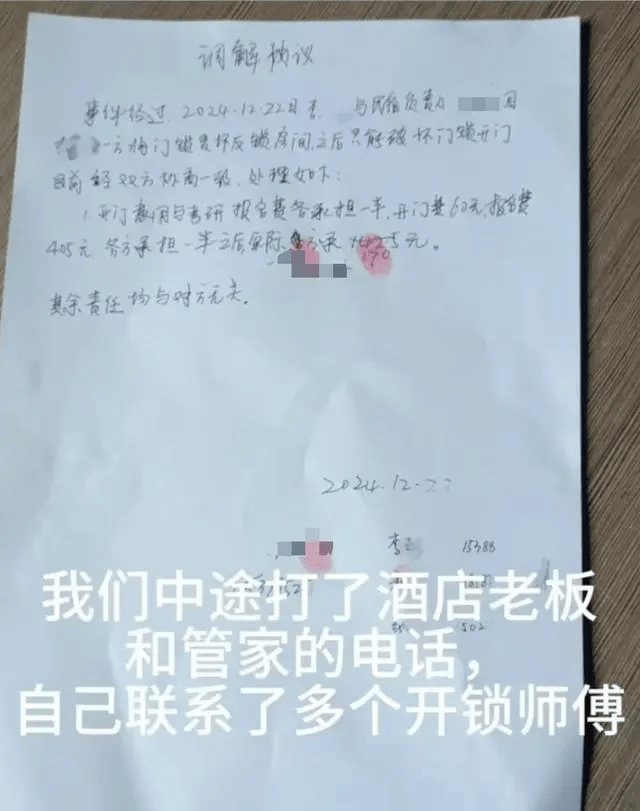 调解协议
事件经过,2024.12.22日李 与民宿负责人 因
一方将门锁损坏反锁房间,之后只能破坏门锁开门
目前经双方协商一致,处理如下:
1.开门费用与考研报名费各承担一半,开门费60元,报名费
405元 各方承担一半之后实际 方承 元。
170
其余责任均与对方无关。
2024.12.
李 15388
502
我们中途打了酒店老板
和管家的电话,
自己联系了多个开锁师傅